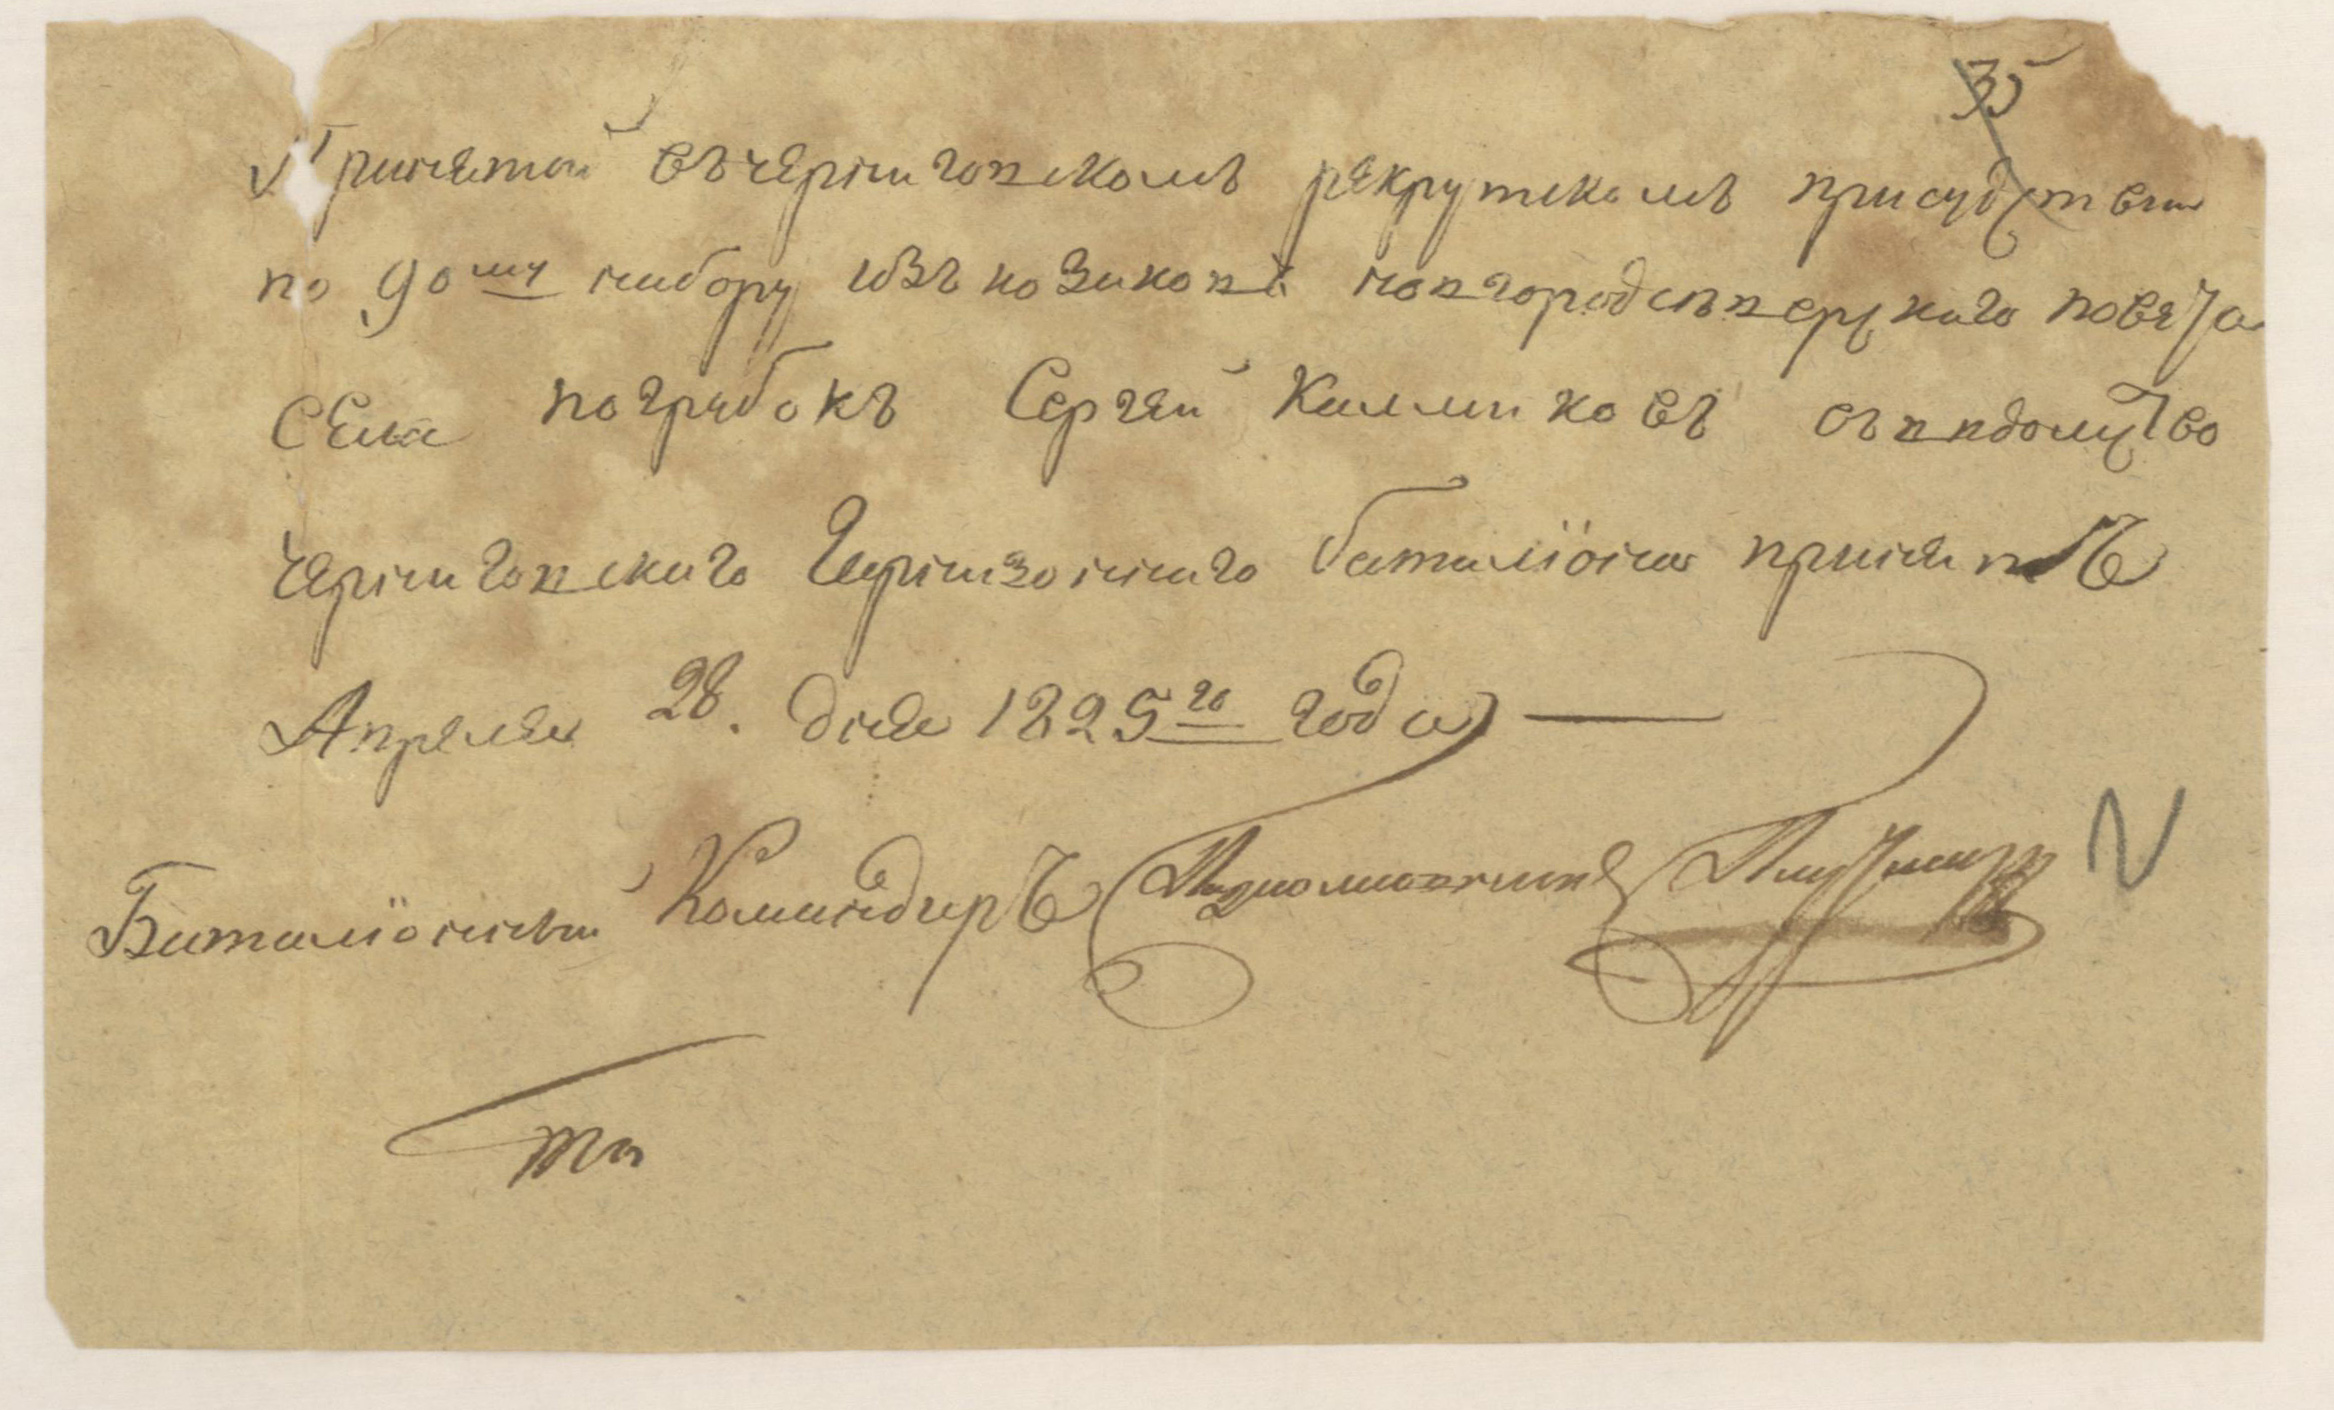 35
Принятой въ черниговскомъ рекрутскомъ присудствии
по 90му набору изъ козаковъ новгородсѣверского повета
села погребокъ Сергей Калмиковъ въ ведомство
черниговского Гарнизонного баталïона принятъ
Апреля 28. дня 1825го года
Баталïонный Командиръ Подполковникъ